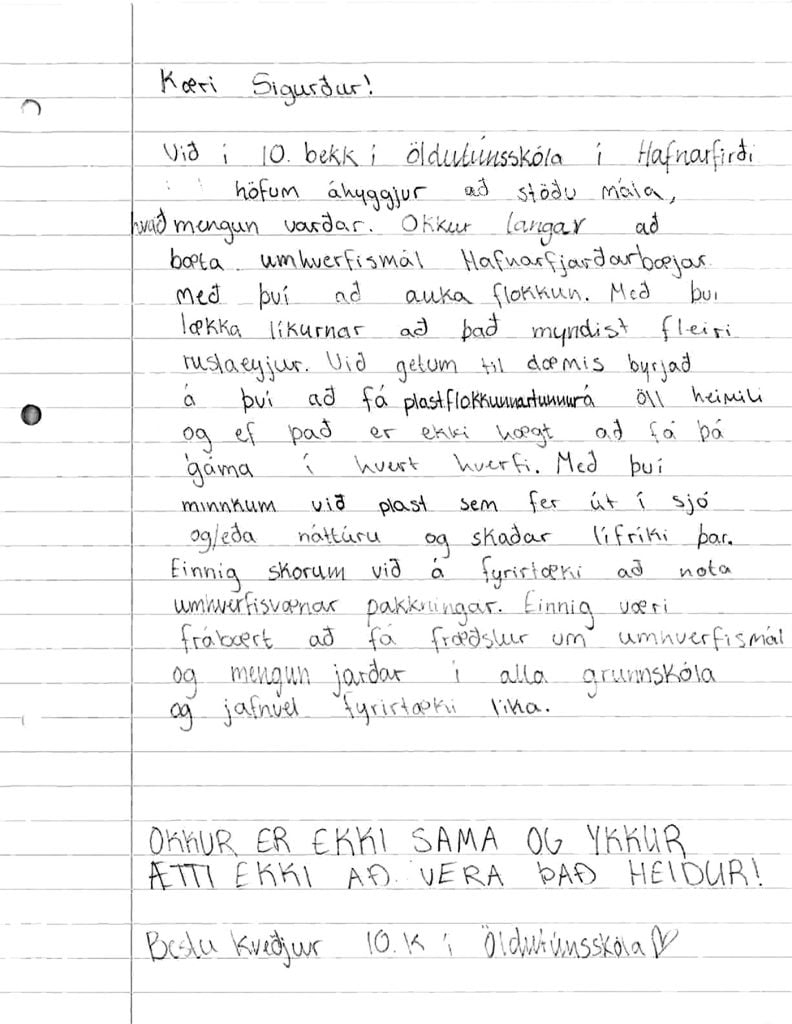 Kæri Sigurður!
Við í 10. bekk í Öldutúnsskóla í Hafnarfirði
höfum áhyggjur að stöðu mála,
hvað mengun varðar. Okkur langar að
bæta umhverfismál Hafnarfjarðarbæjar
með því að auka flokkun. Með því
lækka líkurnar að það myndist fleiri
ruslaeyjur. Við getum til dæmis byrjað
á því að fá plastflokkunnartunnur á öll heimili
og ef það er ekki hægt að fá þá
gáma í hvert hverfi. Með því
minnkum við plast sem fer út í sjó
og/eða náttúru og skaðar lífríki þar.
Einnig skorum við á fyrirtæki að nota
umhverfisvænar pakkningar. Einnig væri
frábært að fá fræðslur um umhverfismál
og mengun jarðar í alla grunnskóla
og jafnvel fyrirtæki líka.
OKKUR ER EKKI SAMA OG YKKUR
ÆTTI EKKI AÐ VERA ÞAÐ HEIDUR!
Bestu kveðjur 10.K í Öldutúnsskóla♡